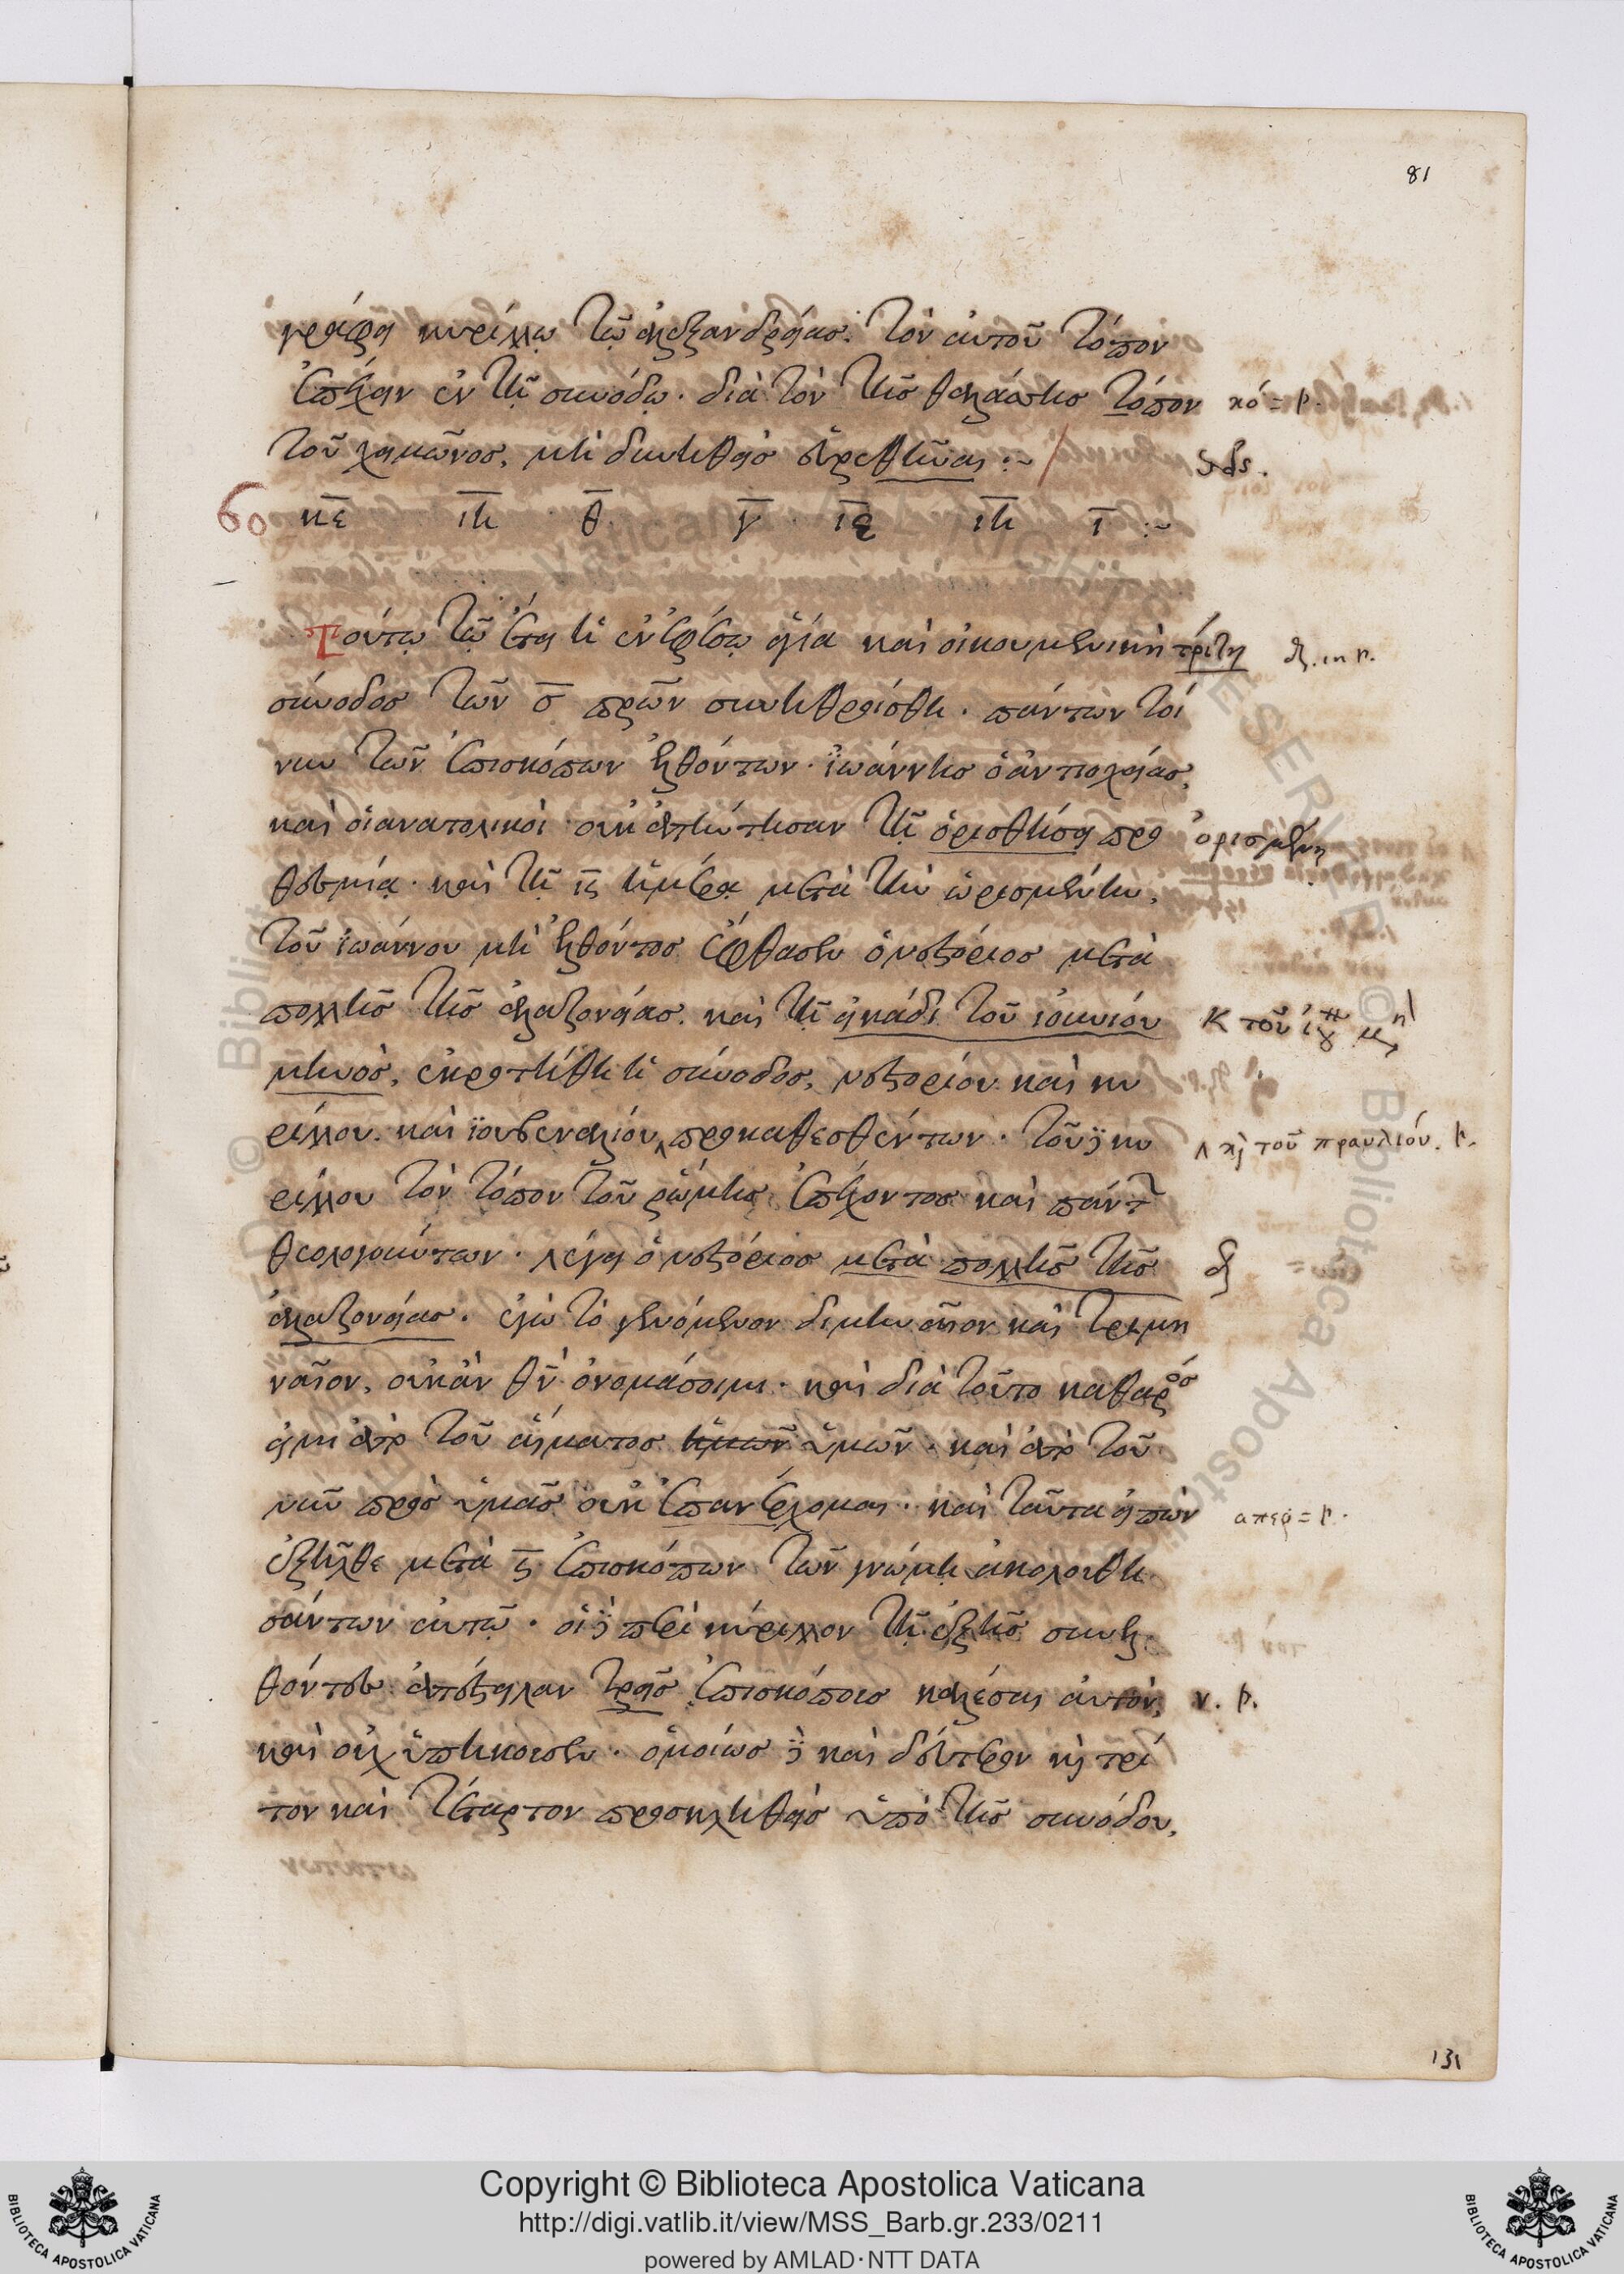 81
γράφει κυρίλλω τῶ ἀλεξανδρείας. τὸν αὐτοῦ τόπον
ἐπέχειν ἐν τῇ συνόδω. διὰ τὸν τῆς θαλάσσης τόπον
κό = ρ.
τοῦ χειμῶνος, μὴ δυνηθεὶς εὑρεθῆναι :~
60 κε ιη θ γ ις ιη ι :~
Τούτω τῶ ἔτει ἡ ἐν ἐφέσω ἁγία καὶ οἰκουμενικὴ τρίτη
σύνοδος τῶν σ πρων συνηθροίσθη. πάντων τοί
νυν τῶν ἐπισκόπων ἐλθόντων. ϊωάννης ὁ ἀντιοχείας,
καὶ οἱ ἀνατολικοὶ οὐκ ἀπήντησαν τῇ ὁρισθείση προ
ὁρισμένη
θεσμία. καὶ τῇ ις ἡμέρα μετὰ τὴν ὡρισμένην,
τοῦ ἰωάννου μὴ ἐλθόντος ἔφθασεν ὁ νεστόριος μετὰ
πολλῆς τῆς ἀλαζονείας. καὶ τῇ εἰκάδι τοῦ ἰουνίου
μηνὸς, ἐκροτήθη ἡ σύνοδος, νεστορίου καὶ κυ
ρίλλου. καὶ ϊουβεναλίου προκαθεσθέντων. τοῦ δὲ κυ
ρίλλου τὸν τόπον τοῦ ῥώμης ἐπέχοντος καὶ πάντ
θεολογούντων. λέγει ὁ νεστόριος μετὰ πολλῆς τῆς
ἀλαζονείας. ἐγὼ τὸ γενόμενον διμηναῖον καὶ τριμη
ναῖον, οὐκ ἂν θν ὀνομάσοιμι. καὶ διὰ τοῦτο καθαρός
εἰμι ἀπὸ τοῦ αἵματος ἡμῶν ὑμῶν. καὶ ἀπὸ τοῦ
νῦν πρὸς ὑμᾶς οὐκ ἐπανέρχομαι. καὶ ταῦτα εἰπὼν
ἐξῆλθε μετὰ ς ἐπισκόπων τῶν γνώμη ἀκολουθη
σάντων αὐτῶ. οἱ δὲ περὶ κύριλλον τῇ ἑξῆς συνελ
θόντες ἀπέστειλαν τρεῖς ἐπισκόπους καλέσαι αὐτὸν,
ν. ρ.
καὶ οὐχ ὑπήκουσεν. ὁμοίως δὲ καὶ δεύτερον καὶ τρί
τον καὶ τέταρτον προσκληθεὶς ὑπὸ τῆς συνόδου,
131
Copyright © Biblioteca Apostolica Vaticana
http://digi.vatlib.it/view/MSS_Barb.gr.233/0211
powered by AMLAD·NTT DATA
BIBLIOTECA APOSTOLICA VATICANA
BIBLIOTECA APOSTOLICA VATICANA